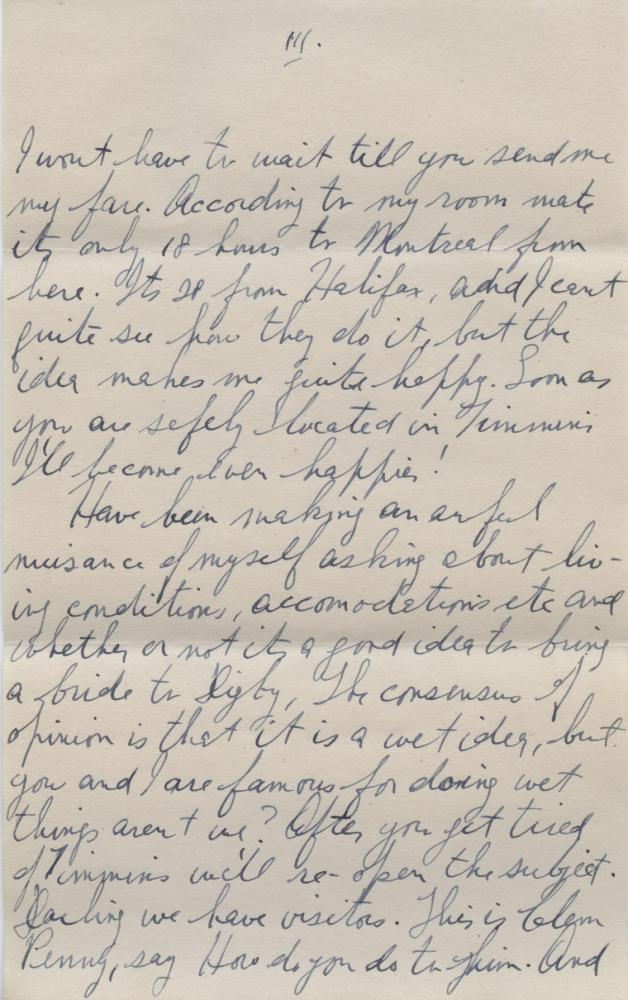 III.
I wont have to wait till you send me
my fare. According to my room mate
its only 18 hours to Montreal from
here. Its 28 from Halifax, and I cant
quite see how they do it, but the
idea makes me quite happy. Soon as
you are safely located in Timmins
I'll become even happier!
Have been making an awful
nuisance of myself asking about liv-
ing conditions, accomodations etc and
whether or not its a good idea to bring
a bride to Digby, The consensus of
opinion is that it is a wet idea, but
you and I are famous for doing wet
things aren't we? After you get tired
of Timmins we'll re-open the subject.
Darling we have visitors. This is Clem
Penny, say How do you do to him. And